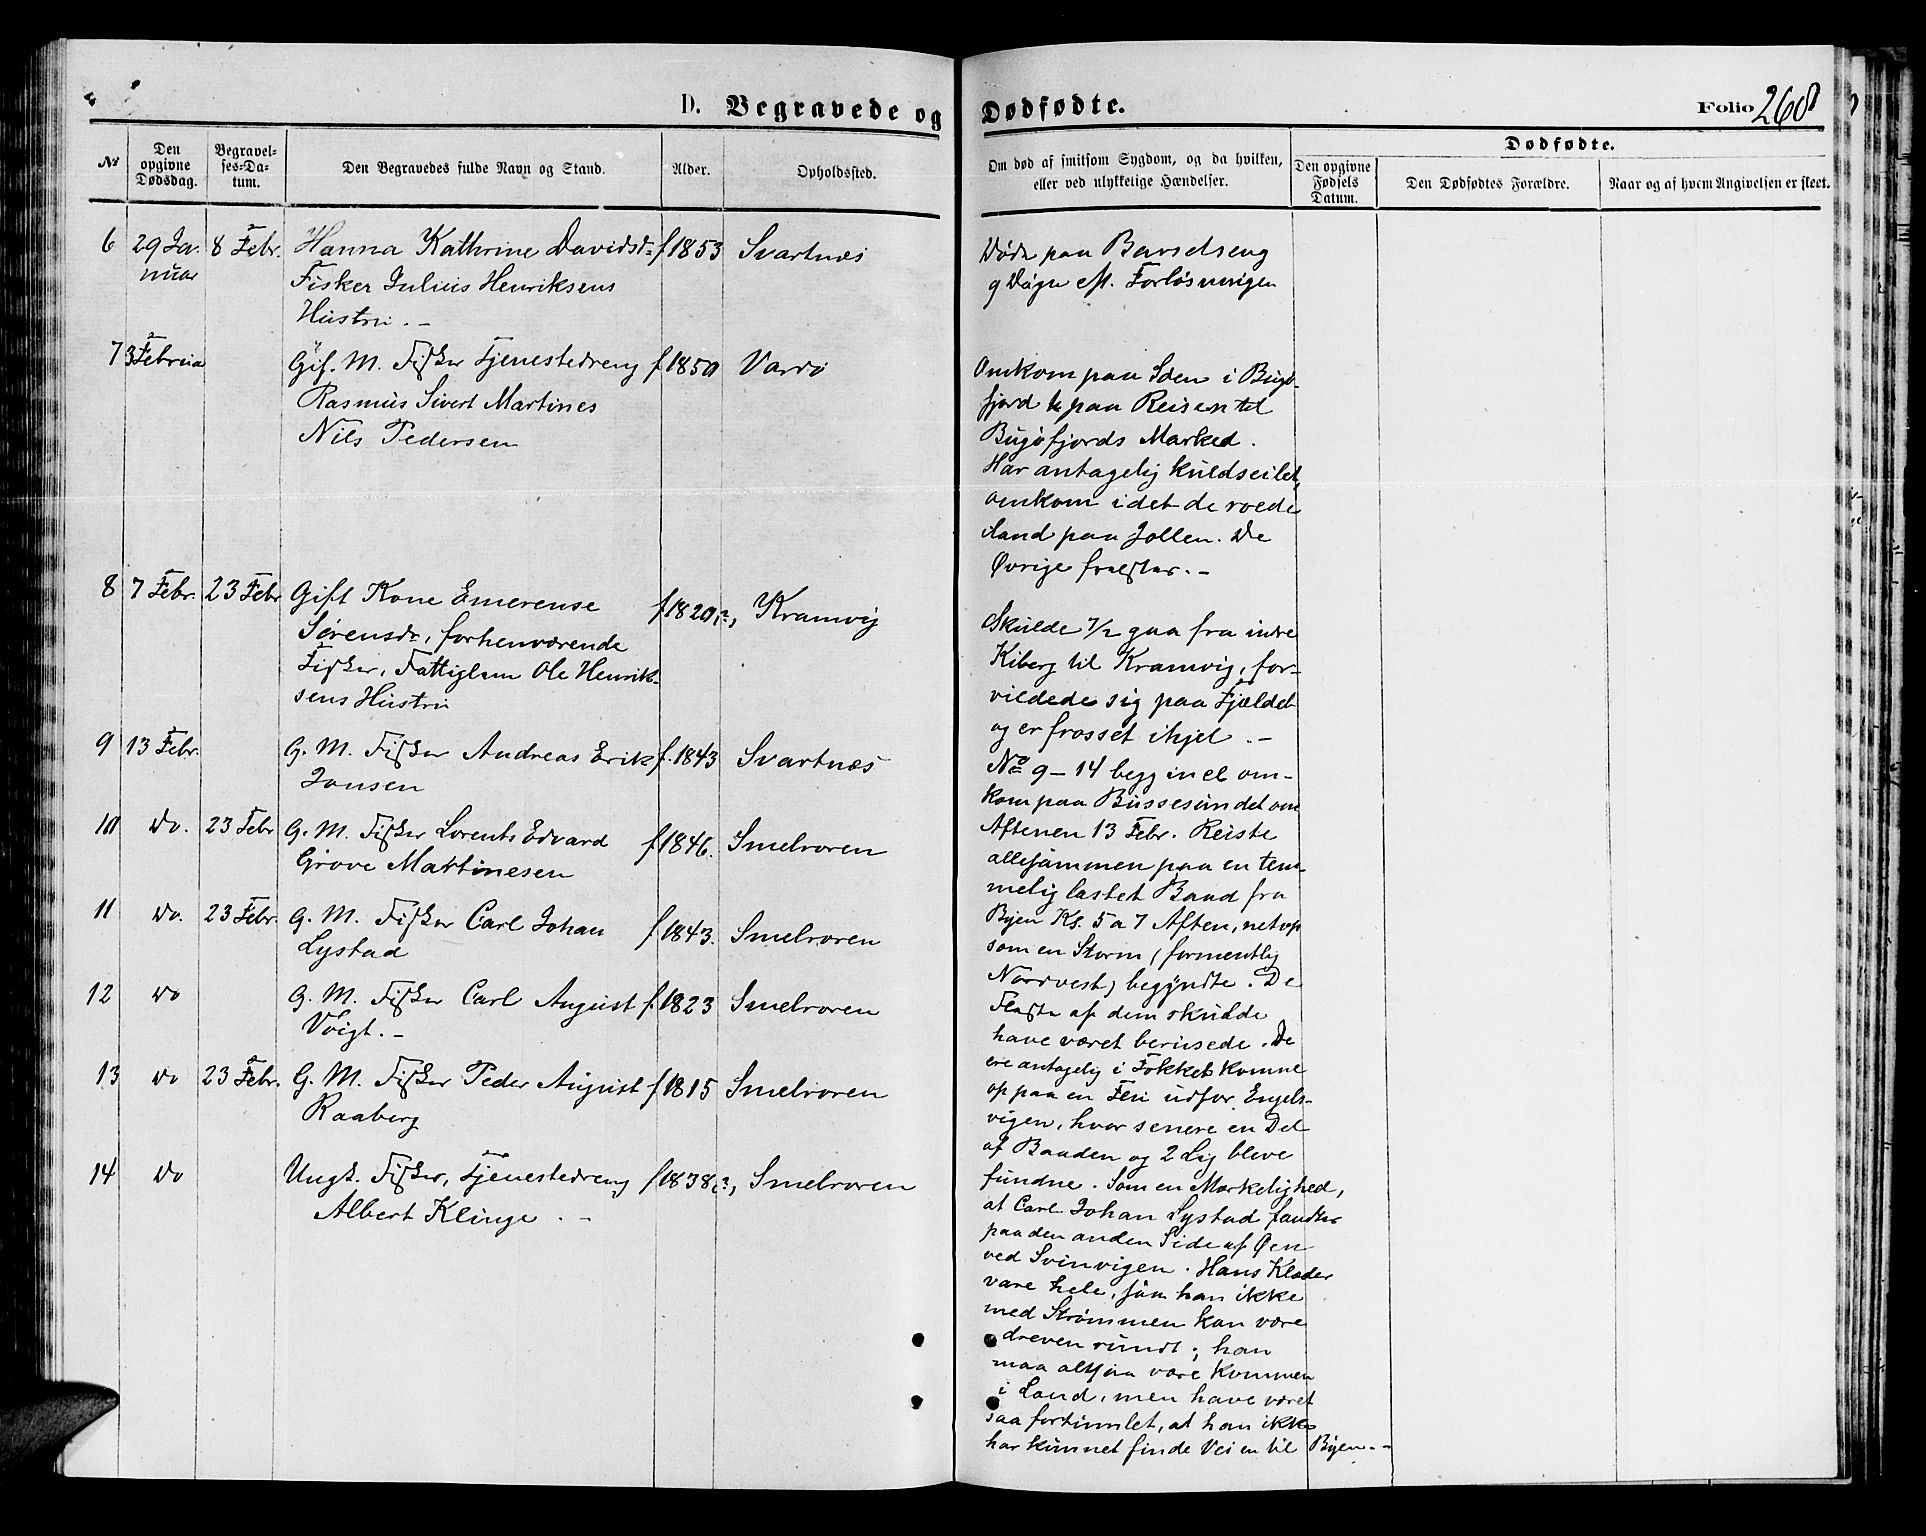 D. Begravede og Dødfødte.
Folio 268
No
Den opgivne Dødsdag.
Begravelses=Datum.
Den Begravedes fulde Navn og Stand.
Alder.
Opholdssted.
Om død af smitsom Sygdom, og da hvilken,
eller ved ulykkelige Hændelser.
Dødfødte.
Den opgivne Fødsels Datum.
Den Dødfødtes Forældre.
Naar og af hvem Angivelsen er skeet.
6 29 Ja- 8 Febr. Hanna Kathrine Davidsd= f 1853 Svartnæs
nuar Fisker Julius Henriksens
Hustru. -
Døde paa Barselseng
9 Dage eft. Forløsningen
7 3 Februar Gif. M. Fisker Tjenestedreng f 1850 Vardø
Rasmus Sivert Martines
Nils Pedersen
Omkom paa Søen i Bugø-
fjord paa Reisen til
Bugøfjords Marked.
Har antagelig kuldseilet,
omkom idet de roede
iland paa Jollen. De
Øvrige frelstes. -
8 7 Febr. 23 Febr Gift Kone Emerense f 1820,?, Kramvig
Sørensdr, forhenværende
Fisker, Fattiglem Ole Henrik-
sens Hustru
Skulde 7/2 gaa fra indre
Kiberg til Kramvig, for-
vildede sig paa Fjeldet
og er frosset ihjel. -
9 13 Febr. G. M. Fisker Andreas Erik f. 1843 Svartnæs
Jonsen
10 do. 23 Febr G. M. Fisker Lorents Edvard f 1846. Smelroren
Grove Martinesen
11 do. 23 Febr. G. M. Fisker Carl Johan f 1843. Smelroren
Lystad
12 do G. M. Fisker Carl August f. 1823 Smelroren
Voigt. -
13 do 23 Febr. G. M. Fisker Peder August f 1815 Smelroren
Raaberg
14 do Ungk. Fisker, Tjenestedreng f 1838,?, Smelroren
Albert Klinge. -
No 9 - 14 begg incl om-
kom paa Bussesundet om
Aftenen 13 Febr. Reiste
allesammen paa en tem-
melig lastet Baad fra
Byen Kl. 5 a 7 Aften, netop
som en Storm (formentlig
Nordvest) begyndte. De
Fleste af dem skulde
have været berusede. De
ere antagelig i Fokket komne
op paa en Flu udfor Engels-
vigen, hvor senere en Del
af Baaden og 2 Lig bleve
fundne. Som en Mærkelighed,
at Carl Johan Lystad fandtes
paa den anden Side af Øen
ved Svinvigen. Hans Klæder
vare hele, saa han ikke
med Strømmen kan være
dreven rundt; han
maa altsaa være kommen
i Land, men have været
saa fortumlet, at han ikke
har kunnet finde Veien til Byen. -